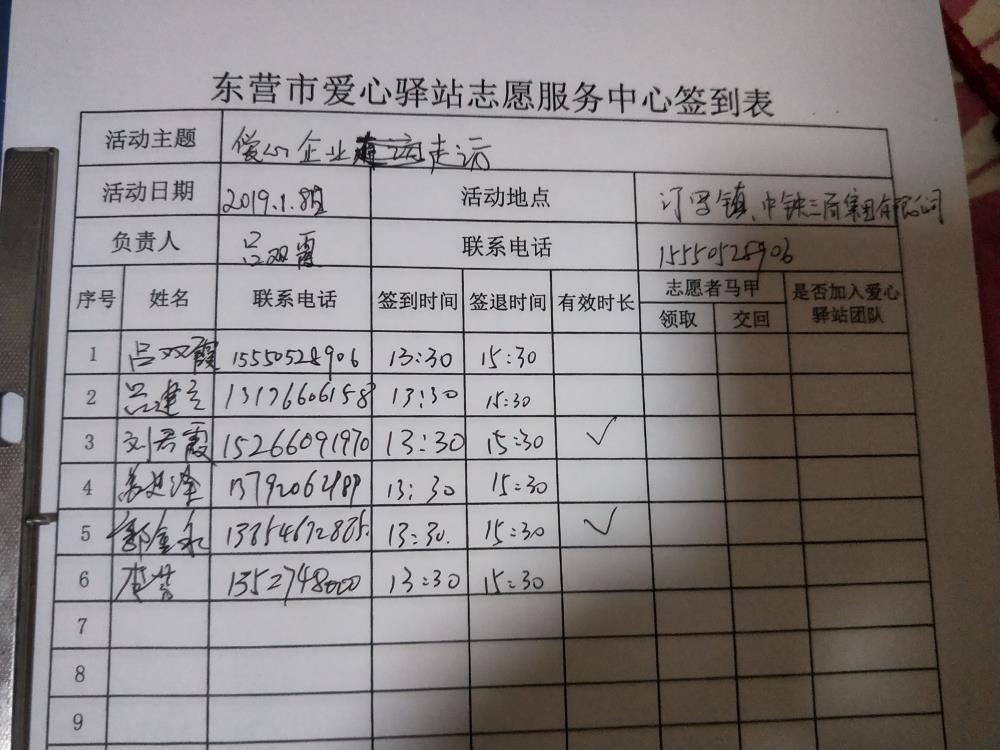 东营市爱心驿站志愿服务中心签到表
活动主题 爱心企业走访
活动日期 2019.1.8 活动地点 汀罗镇、中铁三局集团有限公司
负责人 吕双霞 联系电话 15550528906
序号 姓名 联系电话 签到时间 签退时间 有效时长 志愿者马甲 是否加入爱心驿站团队
领取 交回
1 吕双霞 15550528906 13:30 15:30
2 吕建立 13176606158 13:30 15:30
3 刘君霞 15266091970 13:30 15:30 ✓
4 13:30 15:30
5 郭金永 13854672835 13:30. 15:30 ✓
6 李营 13:30 15:30
7
8
9